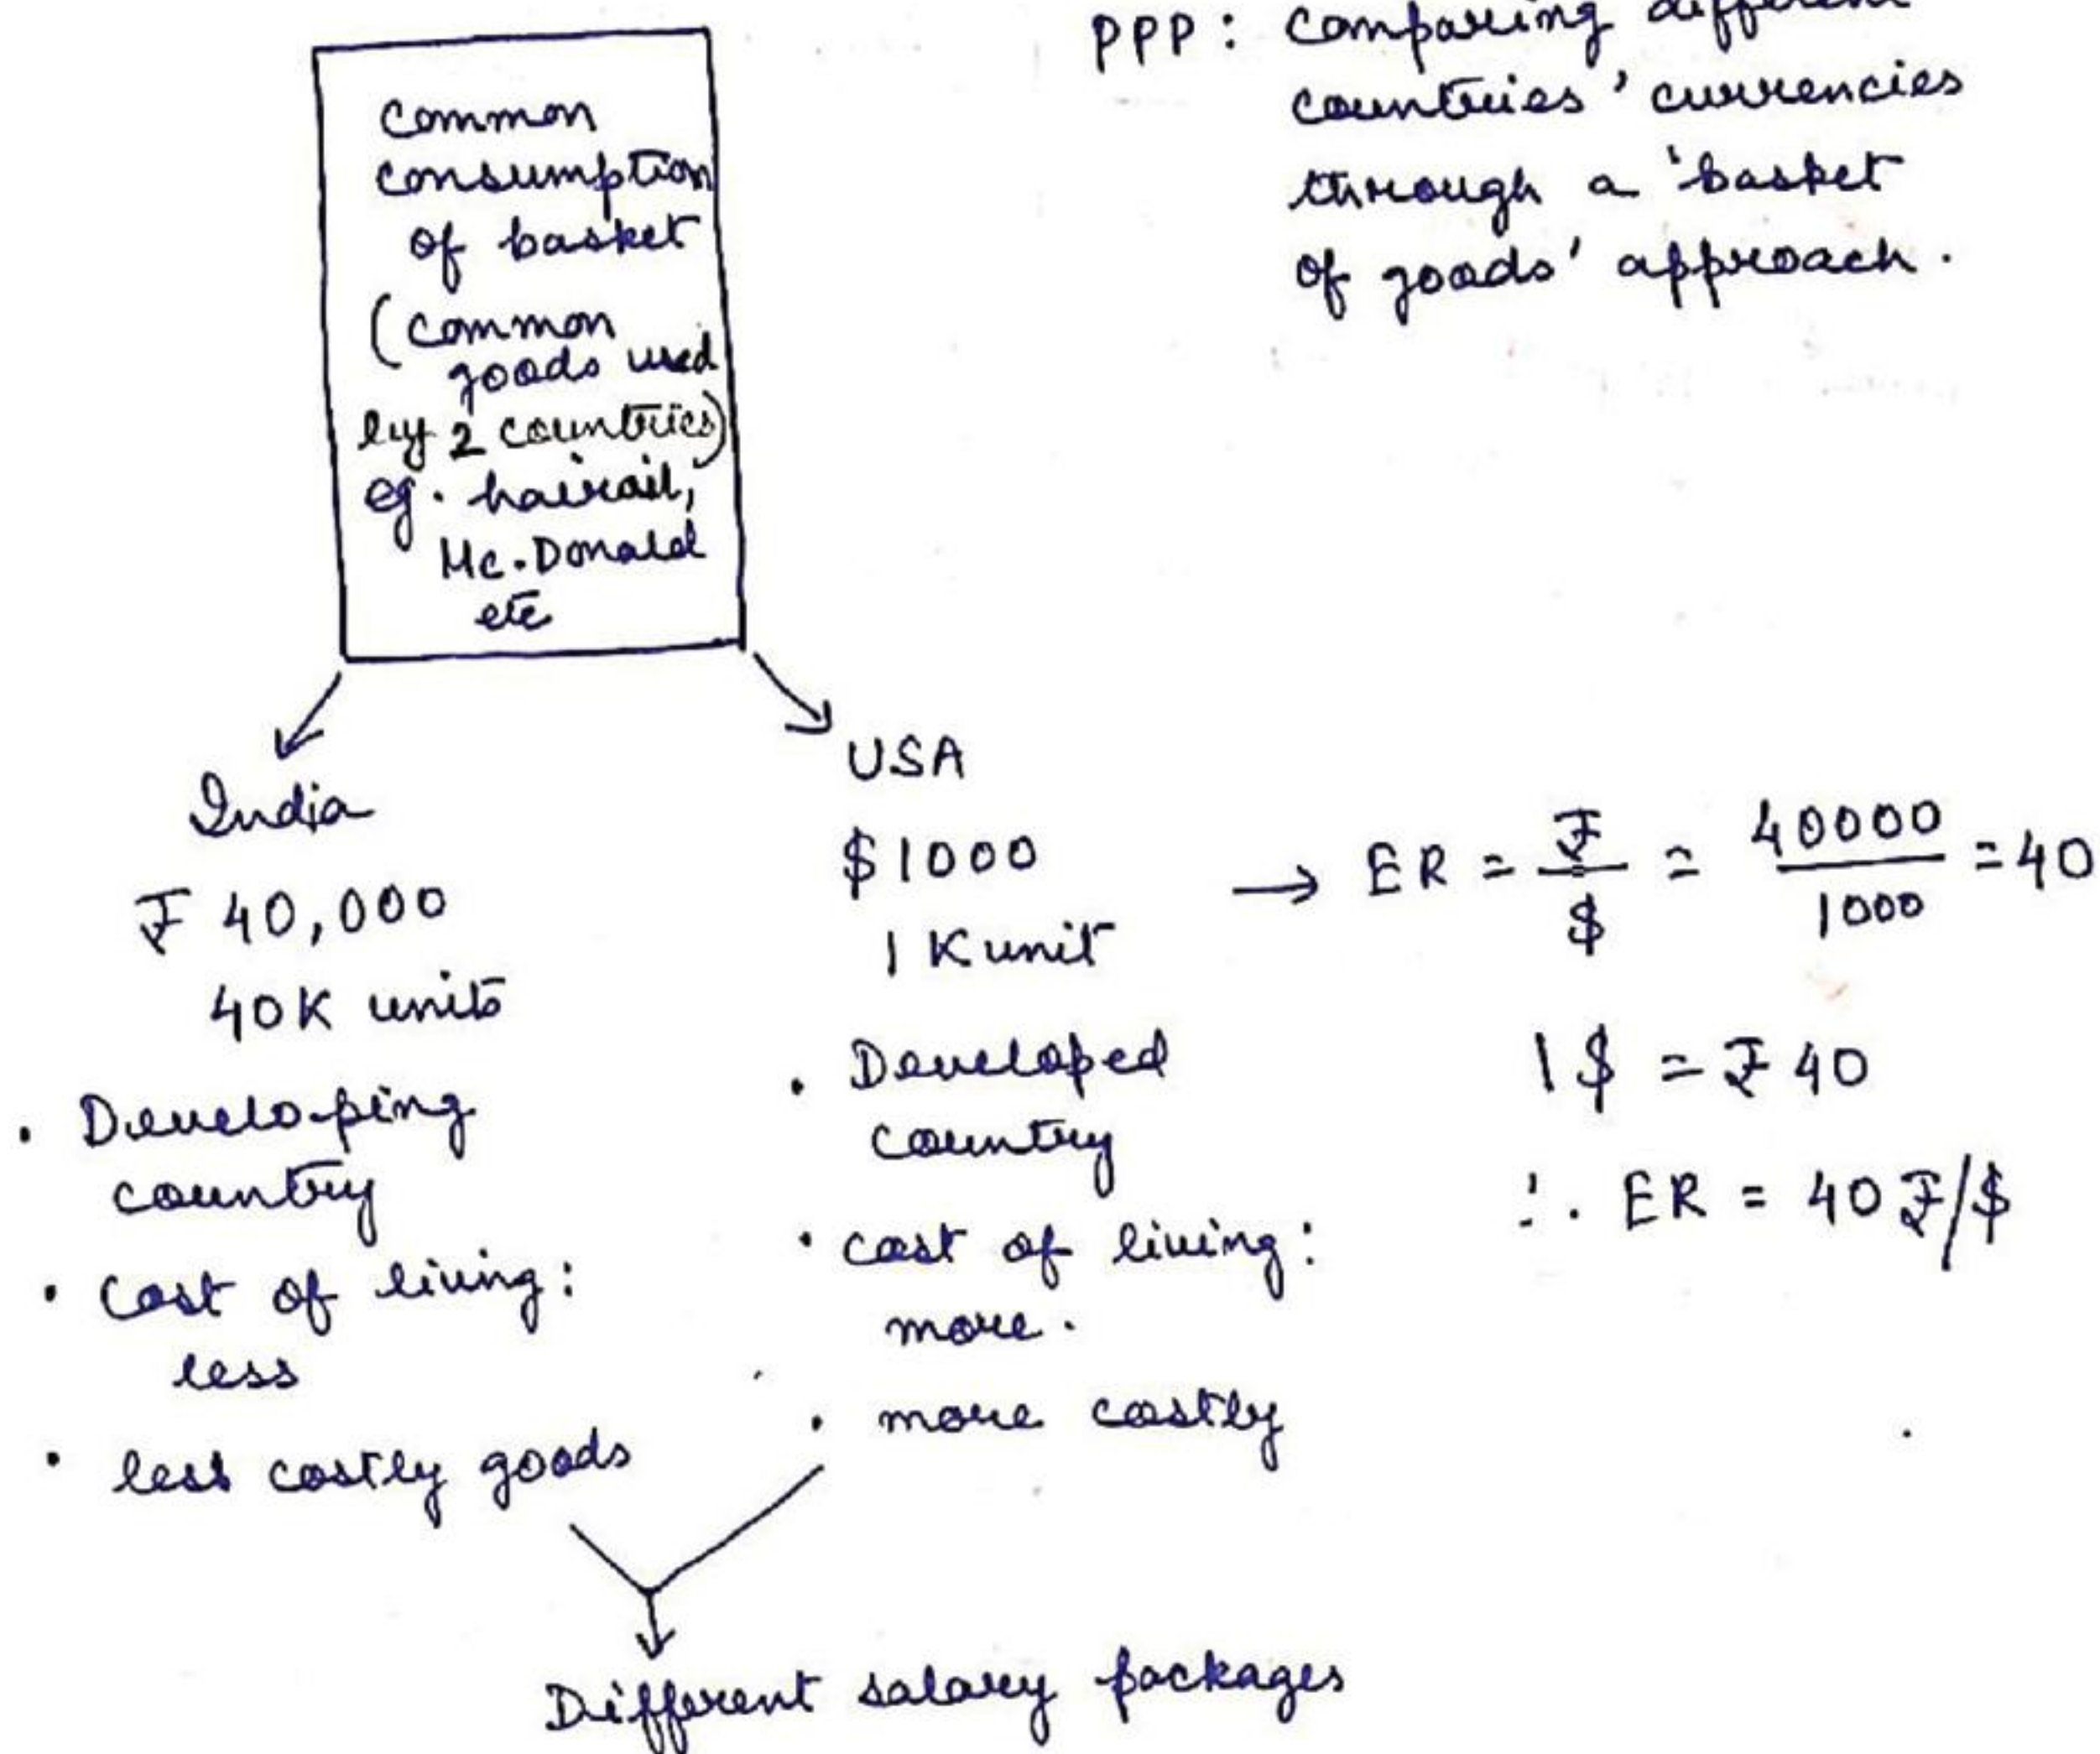 PPP : Comparing different
countries' currencies
through a 'basket
of goods' approach.
Common
consumption
of basket
(common
goods used
by 2 countries)
eg. hairoil,
Mc.Donald
etc
India
₹ 40,000
40K units
. Developing
country
. Cost of living:
less
. less costly goods
USA
$1000
1 K unit
. Developed
country
. cost of living:
more.
. more costly
→ ER = ₹/$ = 40000/1000 = 40
1 $ = ₹ 40
∴ ER = 40 ₹/$
Different salary packages